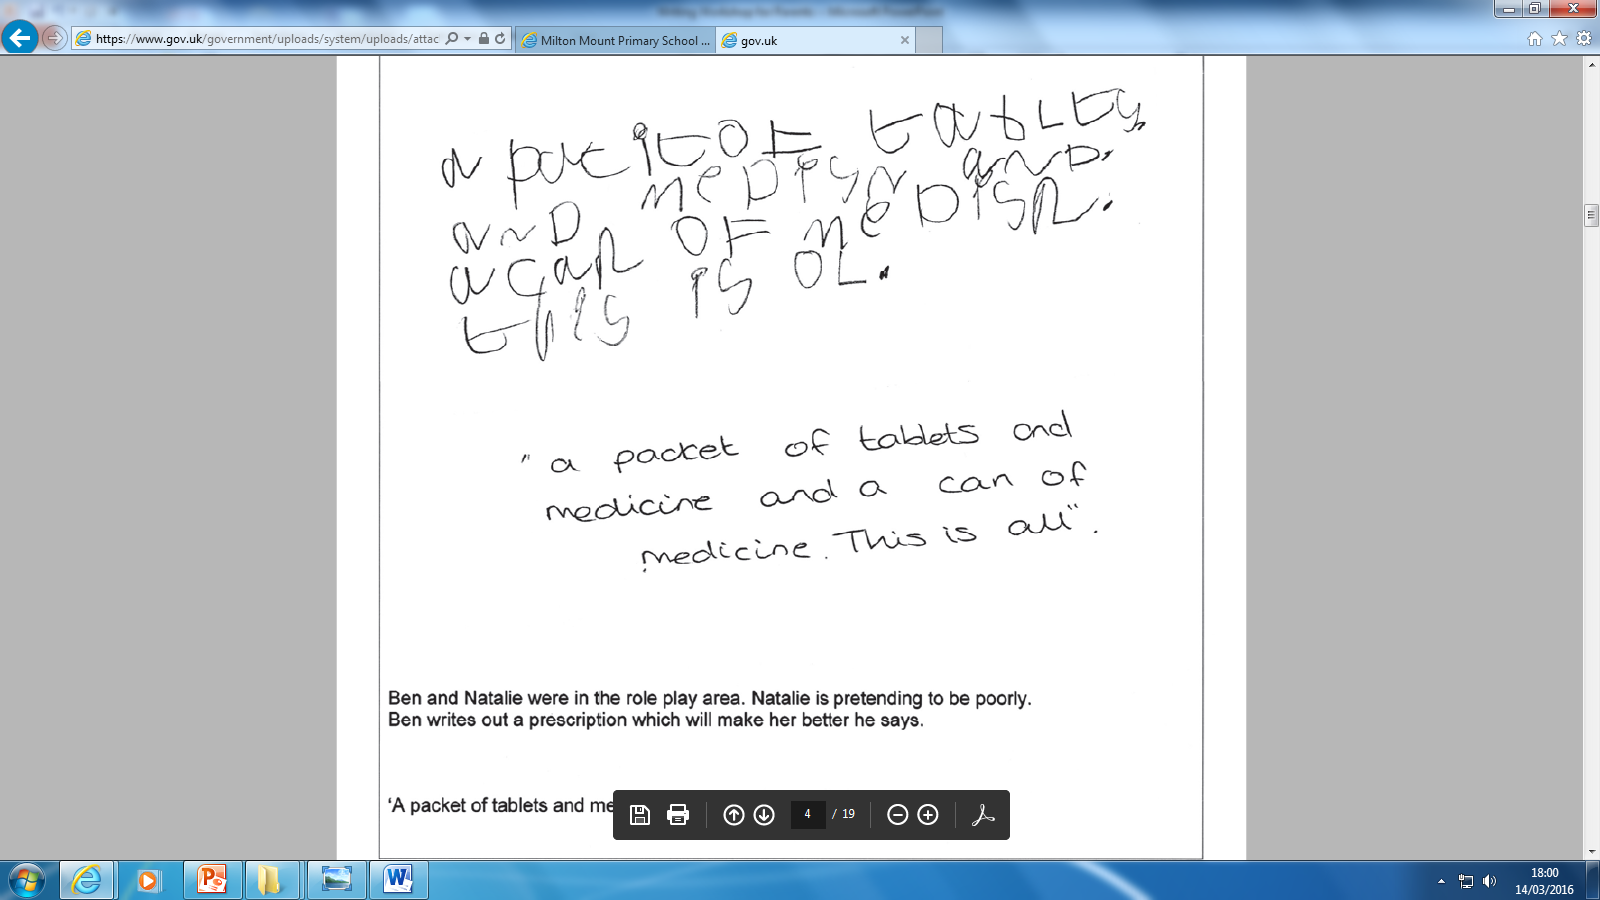 https://www.gov.uk/government/uploads/system/uploads/attac
Milton Mount Primary School ...
gov.uk
a pacitOF tabLts.
meDisn anD.
anD
a can OF meDisn.
this is OL.
" a packet of tablets and
medicine and a can of
medicine. This is all".
Ben and Natalie were in the role play area. Natalie is pretending to be poorly.
Ben writes out a prescription which will make her better he says.
‘A packet of tablets and me
4 / 19
18:00
14/03/2016